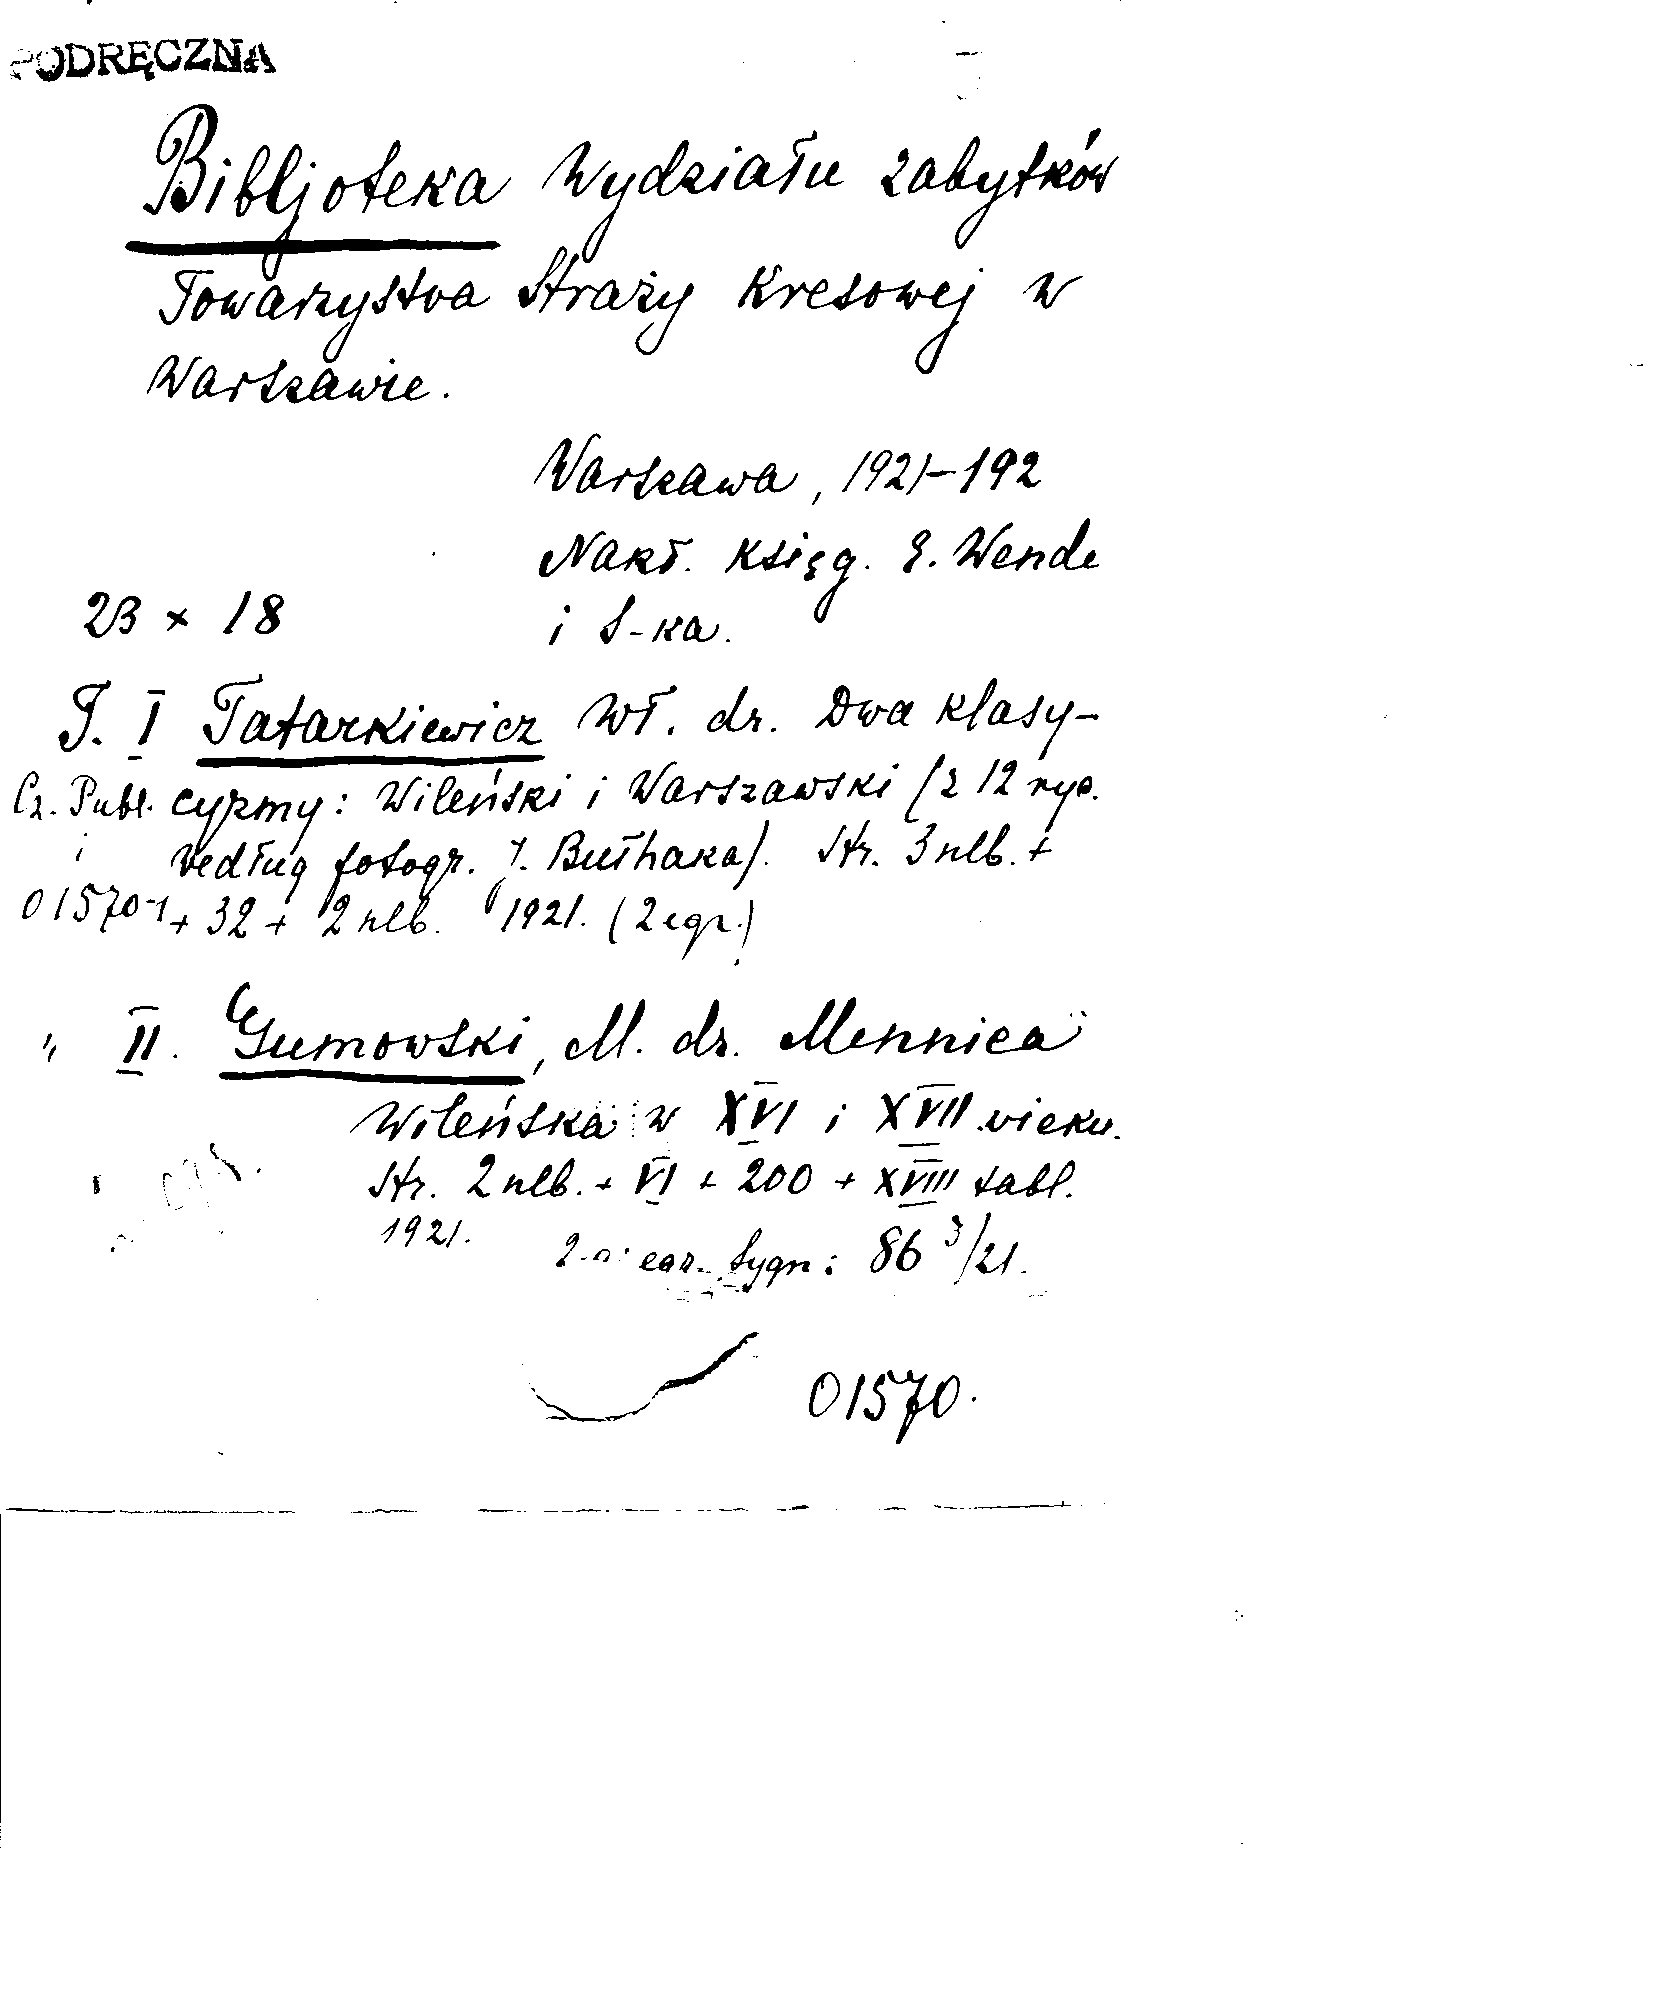 PODRĘCZNA
Bibljoteka Wydziału zabytków
Towarzystwa Straży Kresowej w
Warszawie.
Warszawa, 1921-192
Nakł. Księg. E. Wende
23 x 18 i S-ka.
T. I Tatarkiewicz Wł. dr. Dwa klasy-
Cz. Publ. cyzmy: Wileński i Warszawski (z 12 ryc.
i według fotogr. J. Bułhaka). Str. 3 nlb. +
01570-1 + 32 + 2 nlb. 1921. (2 egz.)
" II. Gumowski, M. dr. Mennica
Wileńska w XVI i XVII wieku.
Str. 2 nlb. + VI + 200 + XVIII tabl.
1921. Sygn: 86 3/21.
01570.